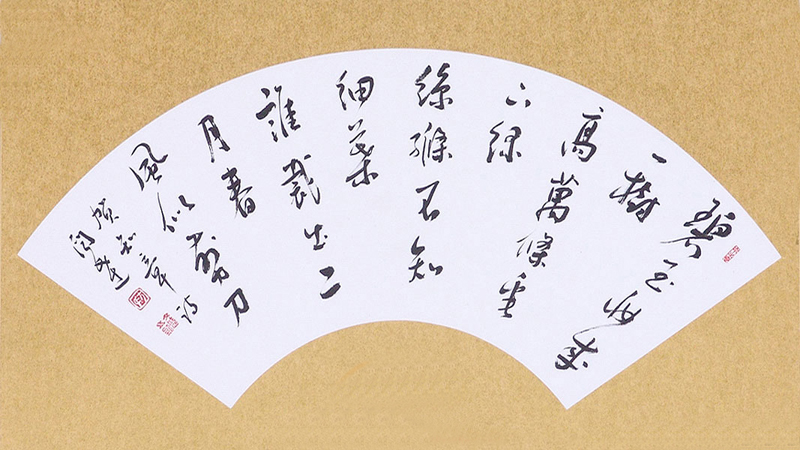 碧玉妝成
一樹
高萬條垂
下綠
絲縧不知
細葉
誰裁出二
月春
風似剪刀
賀知章詩